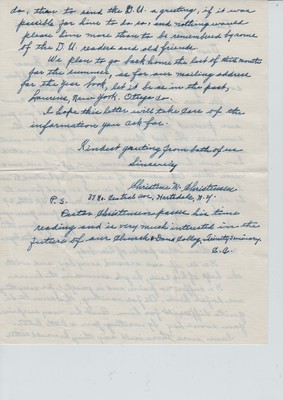 do, than to send the D.U. a greeting, if it was
possible for him to do so, and nothing would
please him more than to be remembered by one
of the D.U. readers and old friends.
We plan to go back home the last of this month
for the summer, so for our mailing address
for the year book, let it be as in the past,
Laurens, New York. Otsego Co.
I hope this letter will take care of the
information you ask for.
Kindest greeting from both of us
Sincerely
Christine N. Christensen
P.S.
Central Ave, Hartsdale, N.Y.
Pastor Christensen passes his time
reading and is very much intrested in the
future of our Church & Dana College, Trinity Seminary.
C.C.